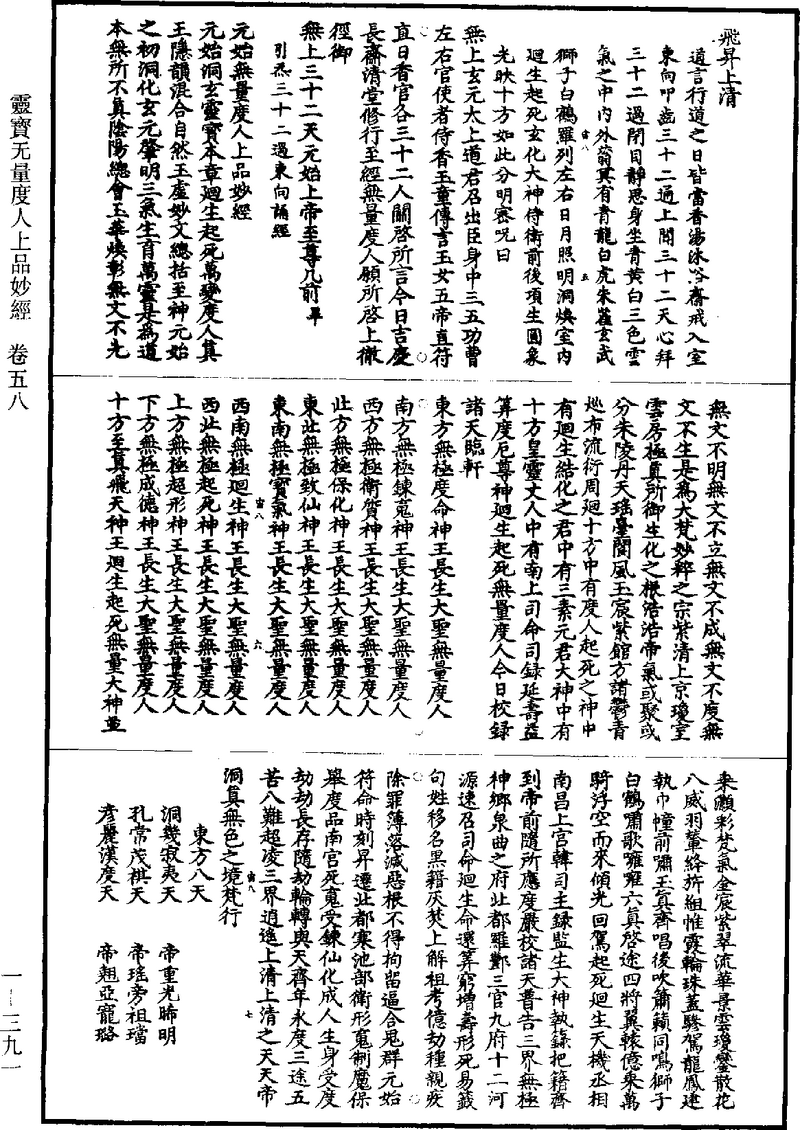 靈寶无量度人上品妙經　卷五八
一—三九一
飛昇上清
道言行道之日皆當香湯沐浴齋戒入室
東向叩齒三十二通上聞三十二天心拜
三十二過閉目靜思身坐青黃白三色雲
氣之中內外蓊冥有青龍白虎朱雀玄武
獅子白鶴羅列左右日月照明洞煥室內
迴生起死玄化大神侍衛前後項生圓象
光映十方如此分明密呪曰
無上玄元太上道君召出臣身中三五功曹
左右官使者侍香玉童傳言玉女五帝直符
直日香官各三十二人關啓所言今日吉慶
長齋清堂修行至經無量度人願所啓上徹
徑御
無上三十二天元始上帝至尊几前畢
引炁三十二過東向誦經
元始無量度人上品妙經
元始洞玄靈寶本章迴生起死萬變度人真
王隱韻混合自然玉虛妙文總括至神元始
之初洞化玄元肇明三氣生育萬靈是為道
本無所不真陰陽總會玉華煥彰無文不光
無文不明無文不立無文不成無文不度無
文不生是為大梵妙粹之宗紫清上京瓊室
雲房極真所御生化之根浩浩帝氣或聚或
分朱陵丹天瑤臺閬風玉宸紫館方諸鬱青
地布流衍周迴十方中有度人起死之神中
有迴生結化之君中有三素元君大神中有
十方皇靈丈人中有南上司命司錄延壽益
算度厄尊神迴生起死無量度人今日校錄
諸天臨軒
東方無極度命神王長生大聖無量度人
南方無極鍊䰟神王長生大聖無量度人
西方無極衛質神王長生大聖無量度人
北方無極保化神王長生大聖無量度人
東北無極致仙神王長生大聖無量度人
東南無極寶氣神王長生大聖無量度人
西南無極迴生神王長生大聖無量度人
西北無極起死神王長生大聖無量度人
上方無極超形神王長生大聖無量度人
下方無極成德神王長生大聖無量度人
十方至真飛天神王迴生起死無量大神並
乘瀕彩梵氣金宸紫翠流華景雲瓊鑾散花
八威羽輦絡旂組帷霞輪珠蓋驂駕龍鳳建
執巾幢前嘯玉真齊唱後吹簫籟同鳴獅子
白鶴嘯歌嗈嗈六真啓途四將翼轅億乘萬
騎浮空而來傾光回駕起死迴生天機丞相
南昌上宮韓司主錄監生大神執錄把籍齊
到帝前隨所應度嚴校諸天普告三界無極
神鄉泉曲之府北都羅酆三官九府十二河
源速召司命迴生命還算窮增壽形死易籙
句姓移名黑籍灰焚上解祖考億劫種親疾
除罪簿落滅惡根不得拘留逼合鬼群元始
符命時刻昇遷北都寒池部衛形䰟制魔保
舉度品南宮死䰟受鍊仙化成人生身受度
劫劫長存隨劫輪轉與天齊年永度三途五
苦八難超凌三界逍遙上清上清之天天帝
洞真無色之境梵行
東方八天
洞幾寂夷天　帝重光晞明
孔常茂祺天　帝瑤旁祖璫
彥麗漢度天　帝翹亞寵璐